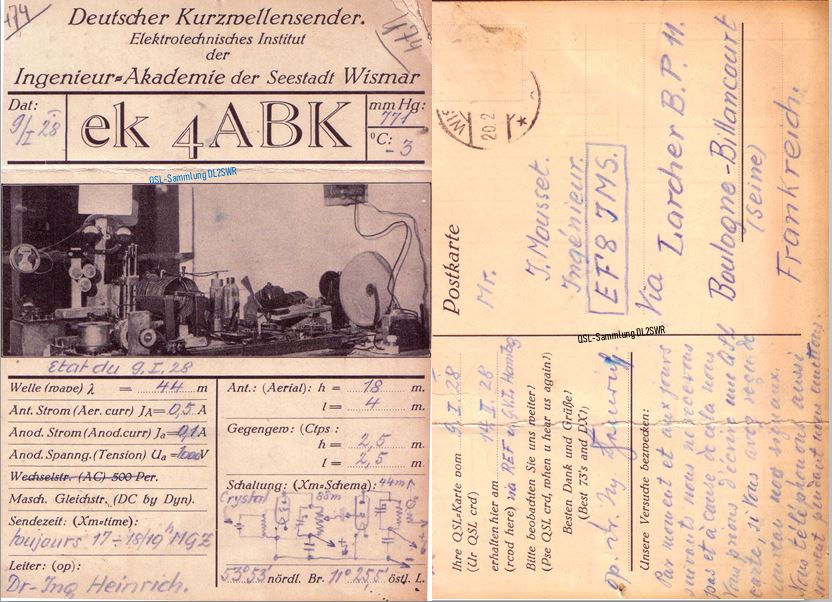 174
Deutscher Kurzwellensender.
Elektrotechnisches Institut
der
Ingenieur-Akademie der Seestadt Wismar
Dat:
9/I 28
ek 4ABK
mm Hg:
771
°C:
- 3
QSL-Sammlung DL2SWR
Etat du 9. I. 28
Welle (wave) λ = 44 m
Ant. Strom (Aer. curr) JA = 0,5 A
Anod. Strom (Anod. curr) Ja = 0,1 A
Anod. Spanng. (Tension) Ua = 1000 V
Wechselstr. (AC) 500 Per.
Masch. Gleichstr. (DC by Dyn).
Sendezeit: (Xm=time):
toujours 17 ÷ 18/19h MGZ
Leiter: (op):
Dr-Ing Heinrich.
Ant.: (Aerial): h = 18 m.
l = 4 m.
Gegengew: (Ctps:
h = 2,5 m.
l = 2,5 m.
Schaltung: (Xm=Schema): 44m
Crystal 88m
53° 53' nördl. Br. 11° 25,5' östl. L.
Postkarte
WIS
20.2
Mr.
J. Mousset.
Ingénieur.
EF8 JMS.
Via Larcher B.P. 11.
Boulogne-Billancourt
(seine)
Frankreich.
QSL-Sammlung DL2SWR
Ihre QSL=Karte vom 9. I. 28
(Ur QSL crd)
erhalten hier am 14. II. 28
(rcvd here) via REF
Bitte beobachten Sie uns weiter!
(Pse QSL crd, when u hear us again!)
Besten Dank und Grüße!
(Best 73's and DX!)
op. Dr. Ing
Unsere Versuche bezwecken:
Par moment et aux jours
suivants nous ne recevons
pas et à cause de cela nous
Vous prions d'écrire une
carte, si Vous avez reçu de
nous signaux.
Nous téléphonons aussi